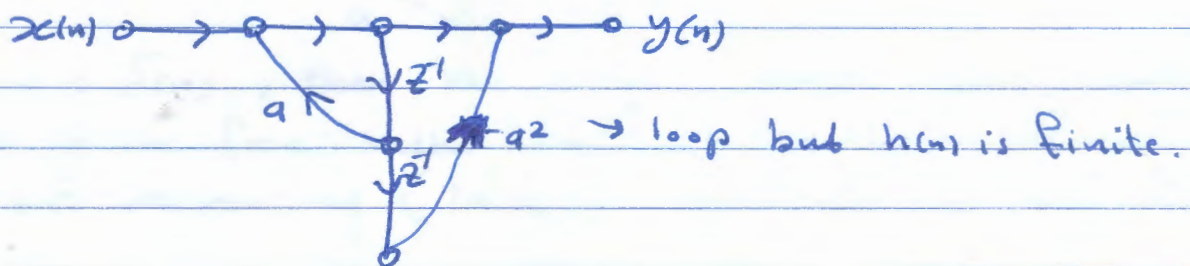 x(n) y(n)
z⁻¹
a -a² → loop but h(n) is finite.
z⁻¹